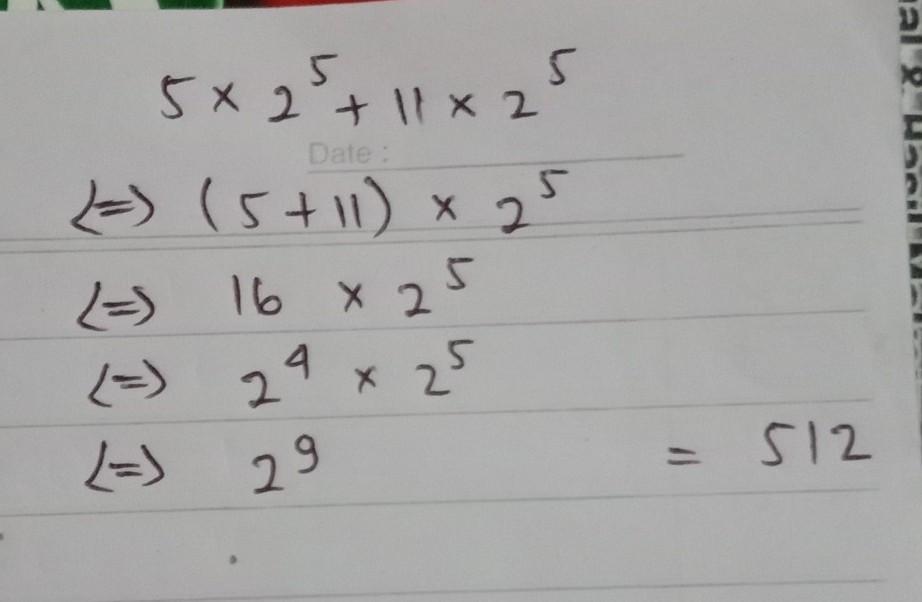 5 × 2⁵ + 11 × 2⁵
Date :
⟨=⟩ (5 + 11) × 2⁵
⟨=⟩ 16 × 2⁵
⟨=⟩ 2⁴ × 2⁵
⟨=⟩ 2⁹ = 512